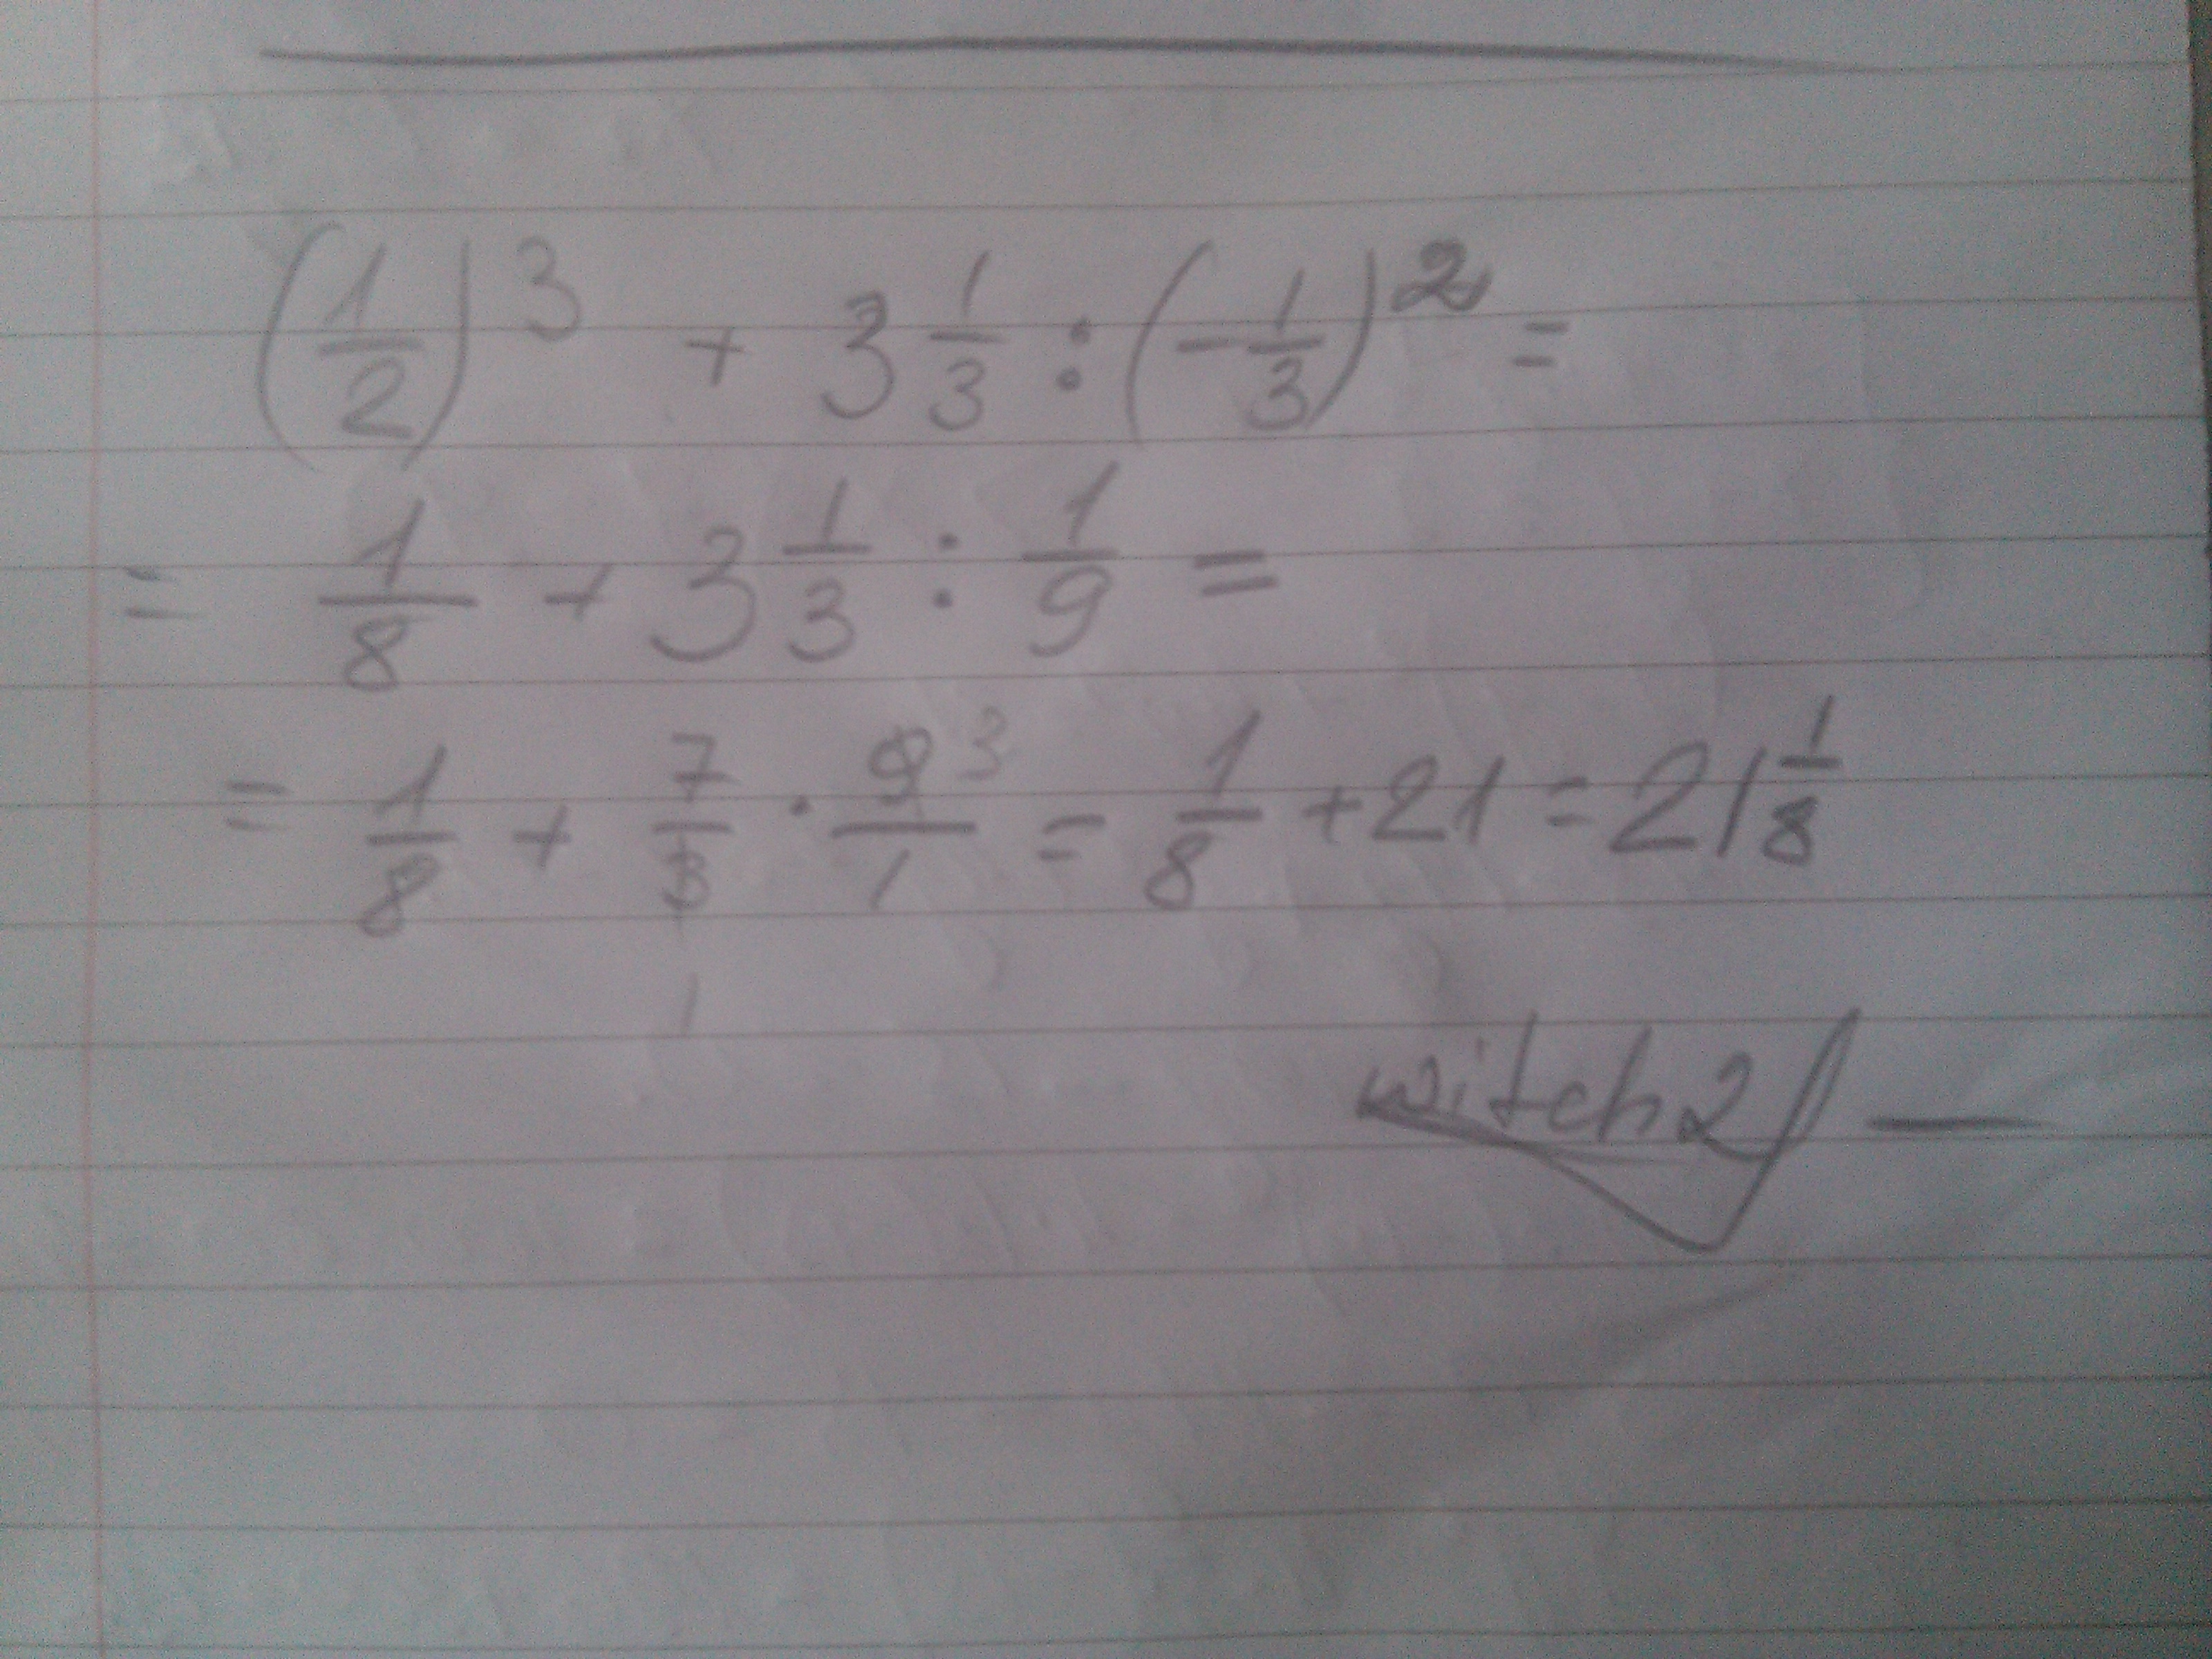 (1/2)³ + 3 1/3 : (-1/3)² =
= 1/8 + 3 1/3 : 1/9 =
= 1/8 + 7/3 · 9/1 3 = 1/8 + 21 = 21 1/8
1
witch2